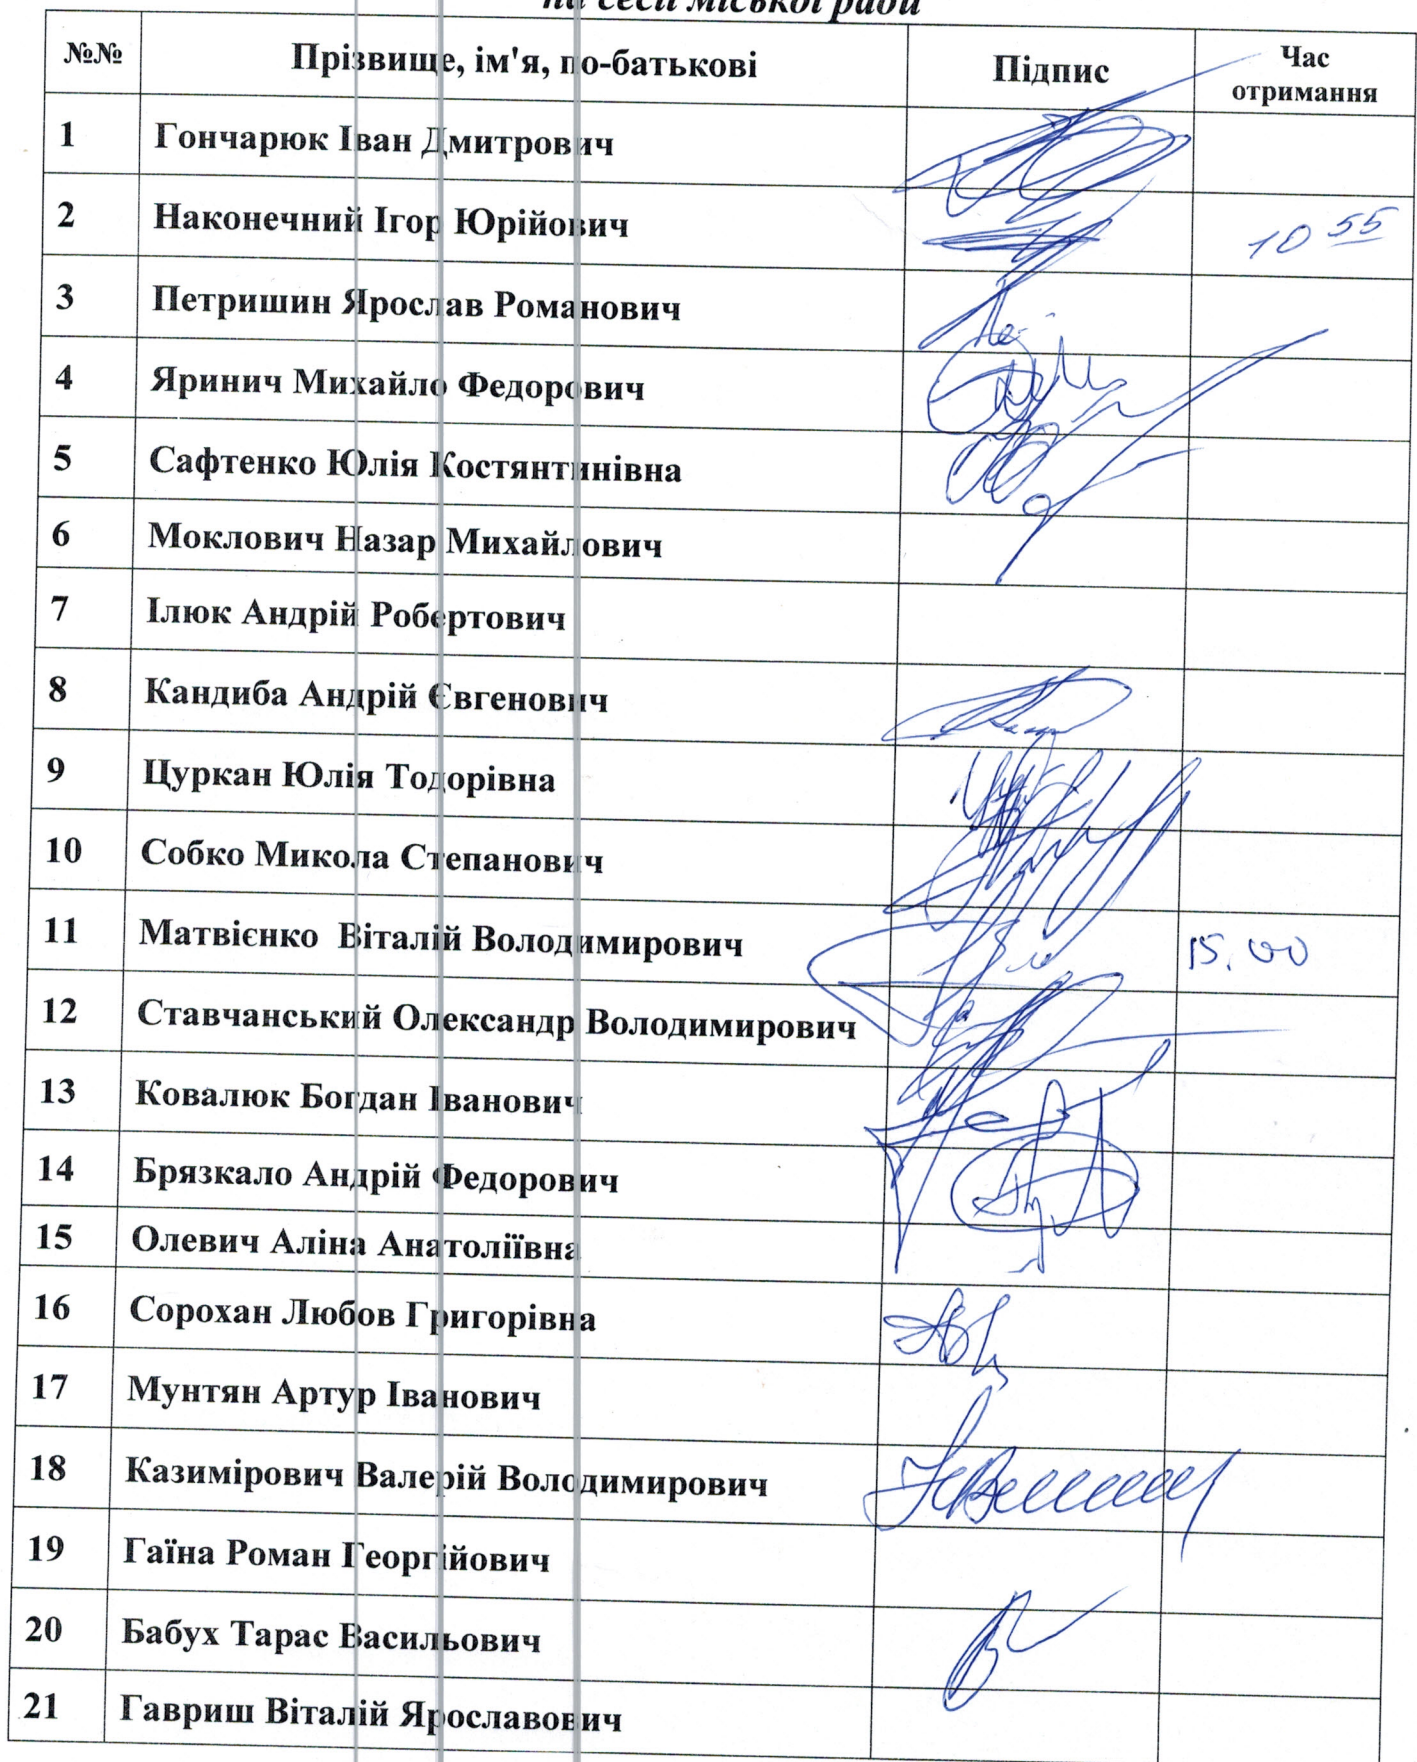 на сесії міської ради
№№ Прізвище, ім'я, по-батькові Підпис Час
отримання
1 Гончарюк Іван Дмитрович
2 Наконечний Ігор Юрійович 10 55
3 Петришин Ярослав Романович
4 Яринич Михайло Федорович
5 Сафтенко Юлія Костянтинівна
6 Моклович Назар Михайлович
7 Ілюк Андрій Робертович
8 Кандиба Андрій Євгенович
9 Цуркан Юлія Тодорівна
10 Собко Микола Степанович
11 Матвієнко Віталій Володимирович 15.00
12 Ставчанський Олександр Володимирович
13 Ковалюк Богдан Іванович
14 Брязкало Андрій Федорович
15 Олевич Аліна Анатоліївна
16 Сорохан Любов Григорівна
17 Мунтян Артур Іванович
18 Казимірович Валерій Володимирович
19 Гаїна Роман Георгійович
20 Бабух Тарас Васильович
21 Гавриш Віталій Ярославович